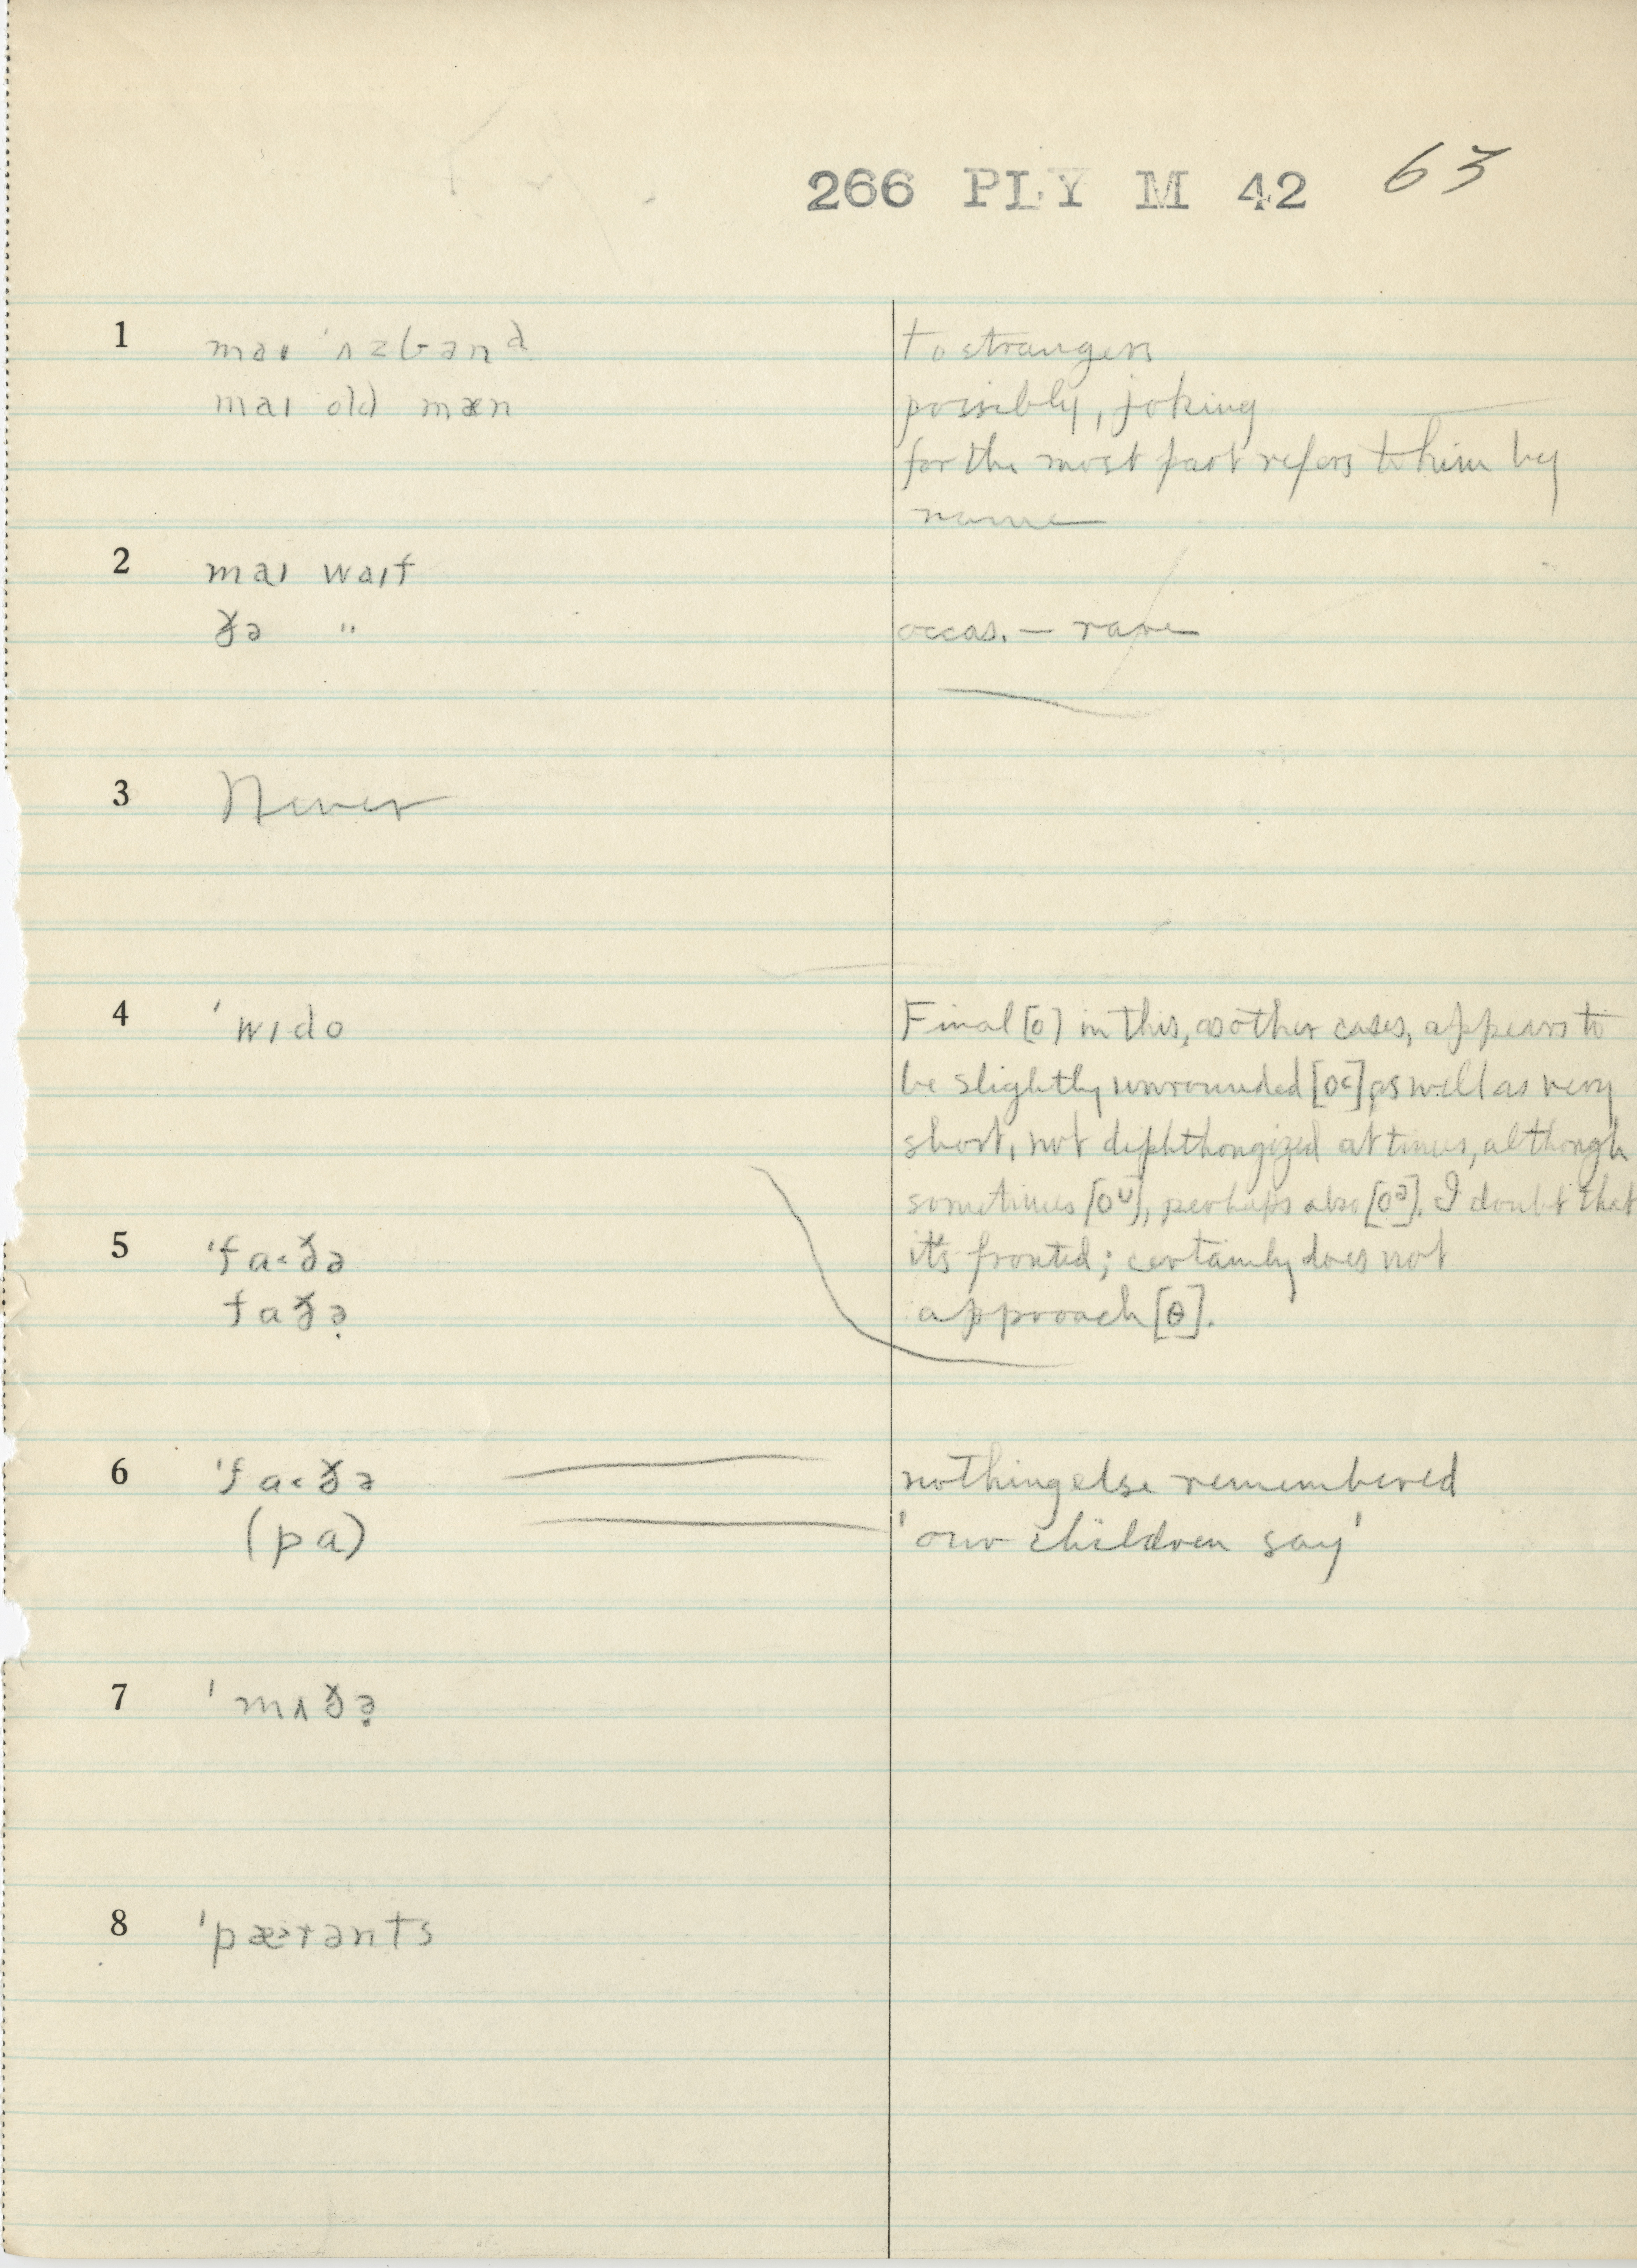 266 PLY M 42 63
1 maɪ ˈʌzbənᵈ to strangers
maɪ old mæn possibly, joking
for the most part refers to him by
name
2 maɪ waɪf
ðə " occas. — rare
3 Never
4 ˈwɪdo Final [o] in this, as other cases, appears to
be slightly unrounded [o˂], as well as very
short, not diphthongized at times, although
sometimes [oᶷ], perhaps also [oᵊ]. I doubt that
5 ˈfa˂ðə it's fronted; certainly does not
faðə̣ approach [ɵ].
6 ˈfa˂ðə nothing else remembered
(pa) 'our children say'
7 ˈmʌðə̣
8 ˈpæ˃rənts